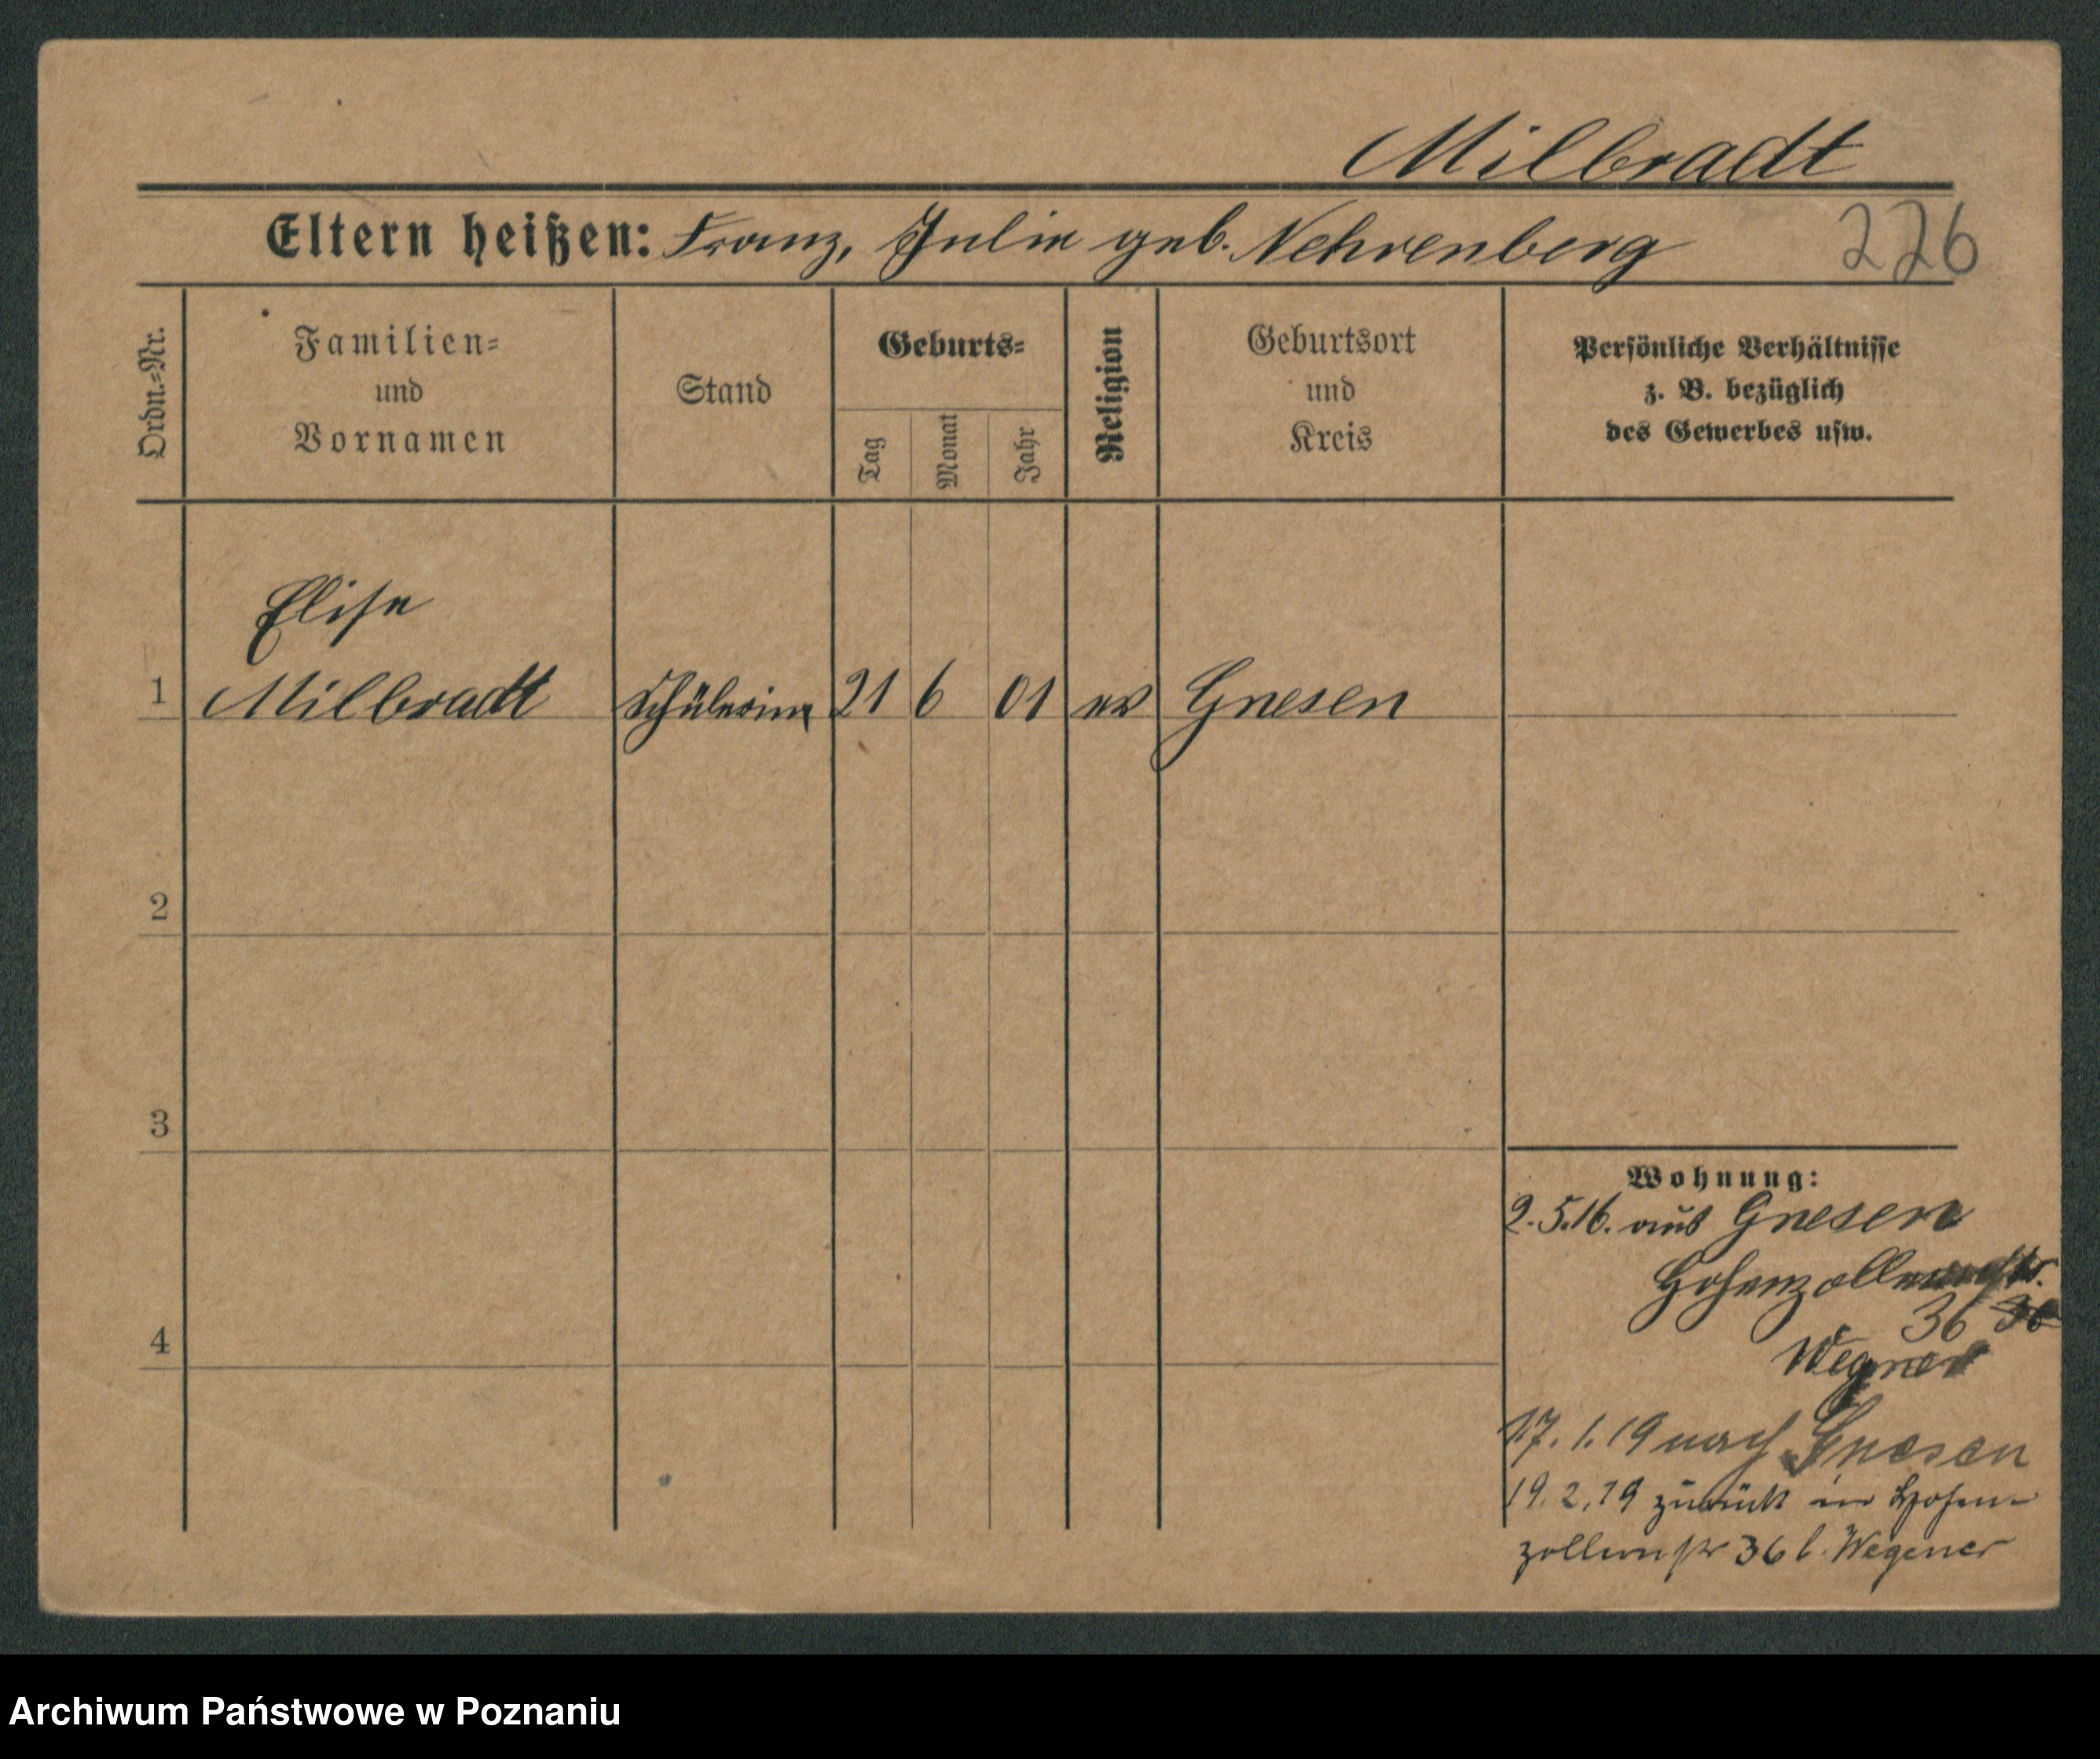 Milbradt
Eltern heißen: Franz, Julie geb. Nehrenberg
226
Ordn.-Nr.
Familien-
und
Vornamen
Stand
Geburts-
Tag
Monat
Jahr
Religion
Geburtsort
und
Kreis
Persönliche Verhältnisse
z. B. bezüglich
des Gewerbes usw.
Elise
1 Milbradt Schülerin 21 6 01 ev Gnesen
2
3
4
Wohnung:
2.5.16. aus Gnesen
Hohenzollernstr.
36 36
Wegner
17.1.19 nach Gnesen
19.2.19 zurück in Hohen-
zollernstr 36 b. Wegener
Archiwum Państwowe w Poznaniu